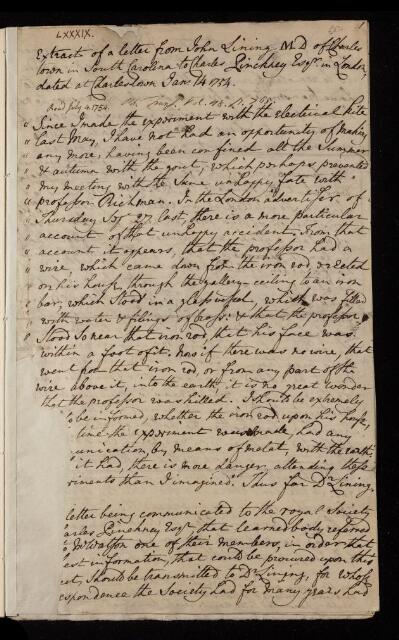 LXXXIX.
1
Extract of a letter from John Lining M.D. of Charles
town in South Carolina to Charles Pinckney Esqr. in London,
dated at Charlestown Jan. 14 1754.
Read July 4. 1754.
Since I made the experiment with the electrical kite
last May, I have not had an opportunity of making
any more, having been confined all the Summer
& autumn with the gout, which perhaps prevented
my meeting with the same unhappy fate with
professor Richman. In the London advertiser of
Thursday 27 last there is a more particular
account of that unhappy accident. From that
account it appears, that the professor had a
wire, which came down from the iron rod erected
on his house, through the gallery-ceiling to an iron
bar, which stood in a glass vessel, which was filled
with water & filings of brass: & that the professor
stood so near that iron rod, that his face was
within a foot of it. Now if there was no wire, that
went from that iron rod, or from any part of the
wire above it, into the earth, it is no great wonder
that the professor was killed. I should be extremely
be informed, whether the iron rod upon his house,
time the experiment was made had any
unication, by means of metal, with the earth;
it had, there is more danger attending these
riments than I imagined. Thus far Dr Lining.
letter being communicated to the royal Society
arles Pinckney Esqr. that learned body referred
Watson one of their members, in order that
est information, that could be procured upon this
ect, should be transmitted to Dr Lining, for whose
espondence the Society had for many years had